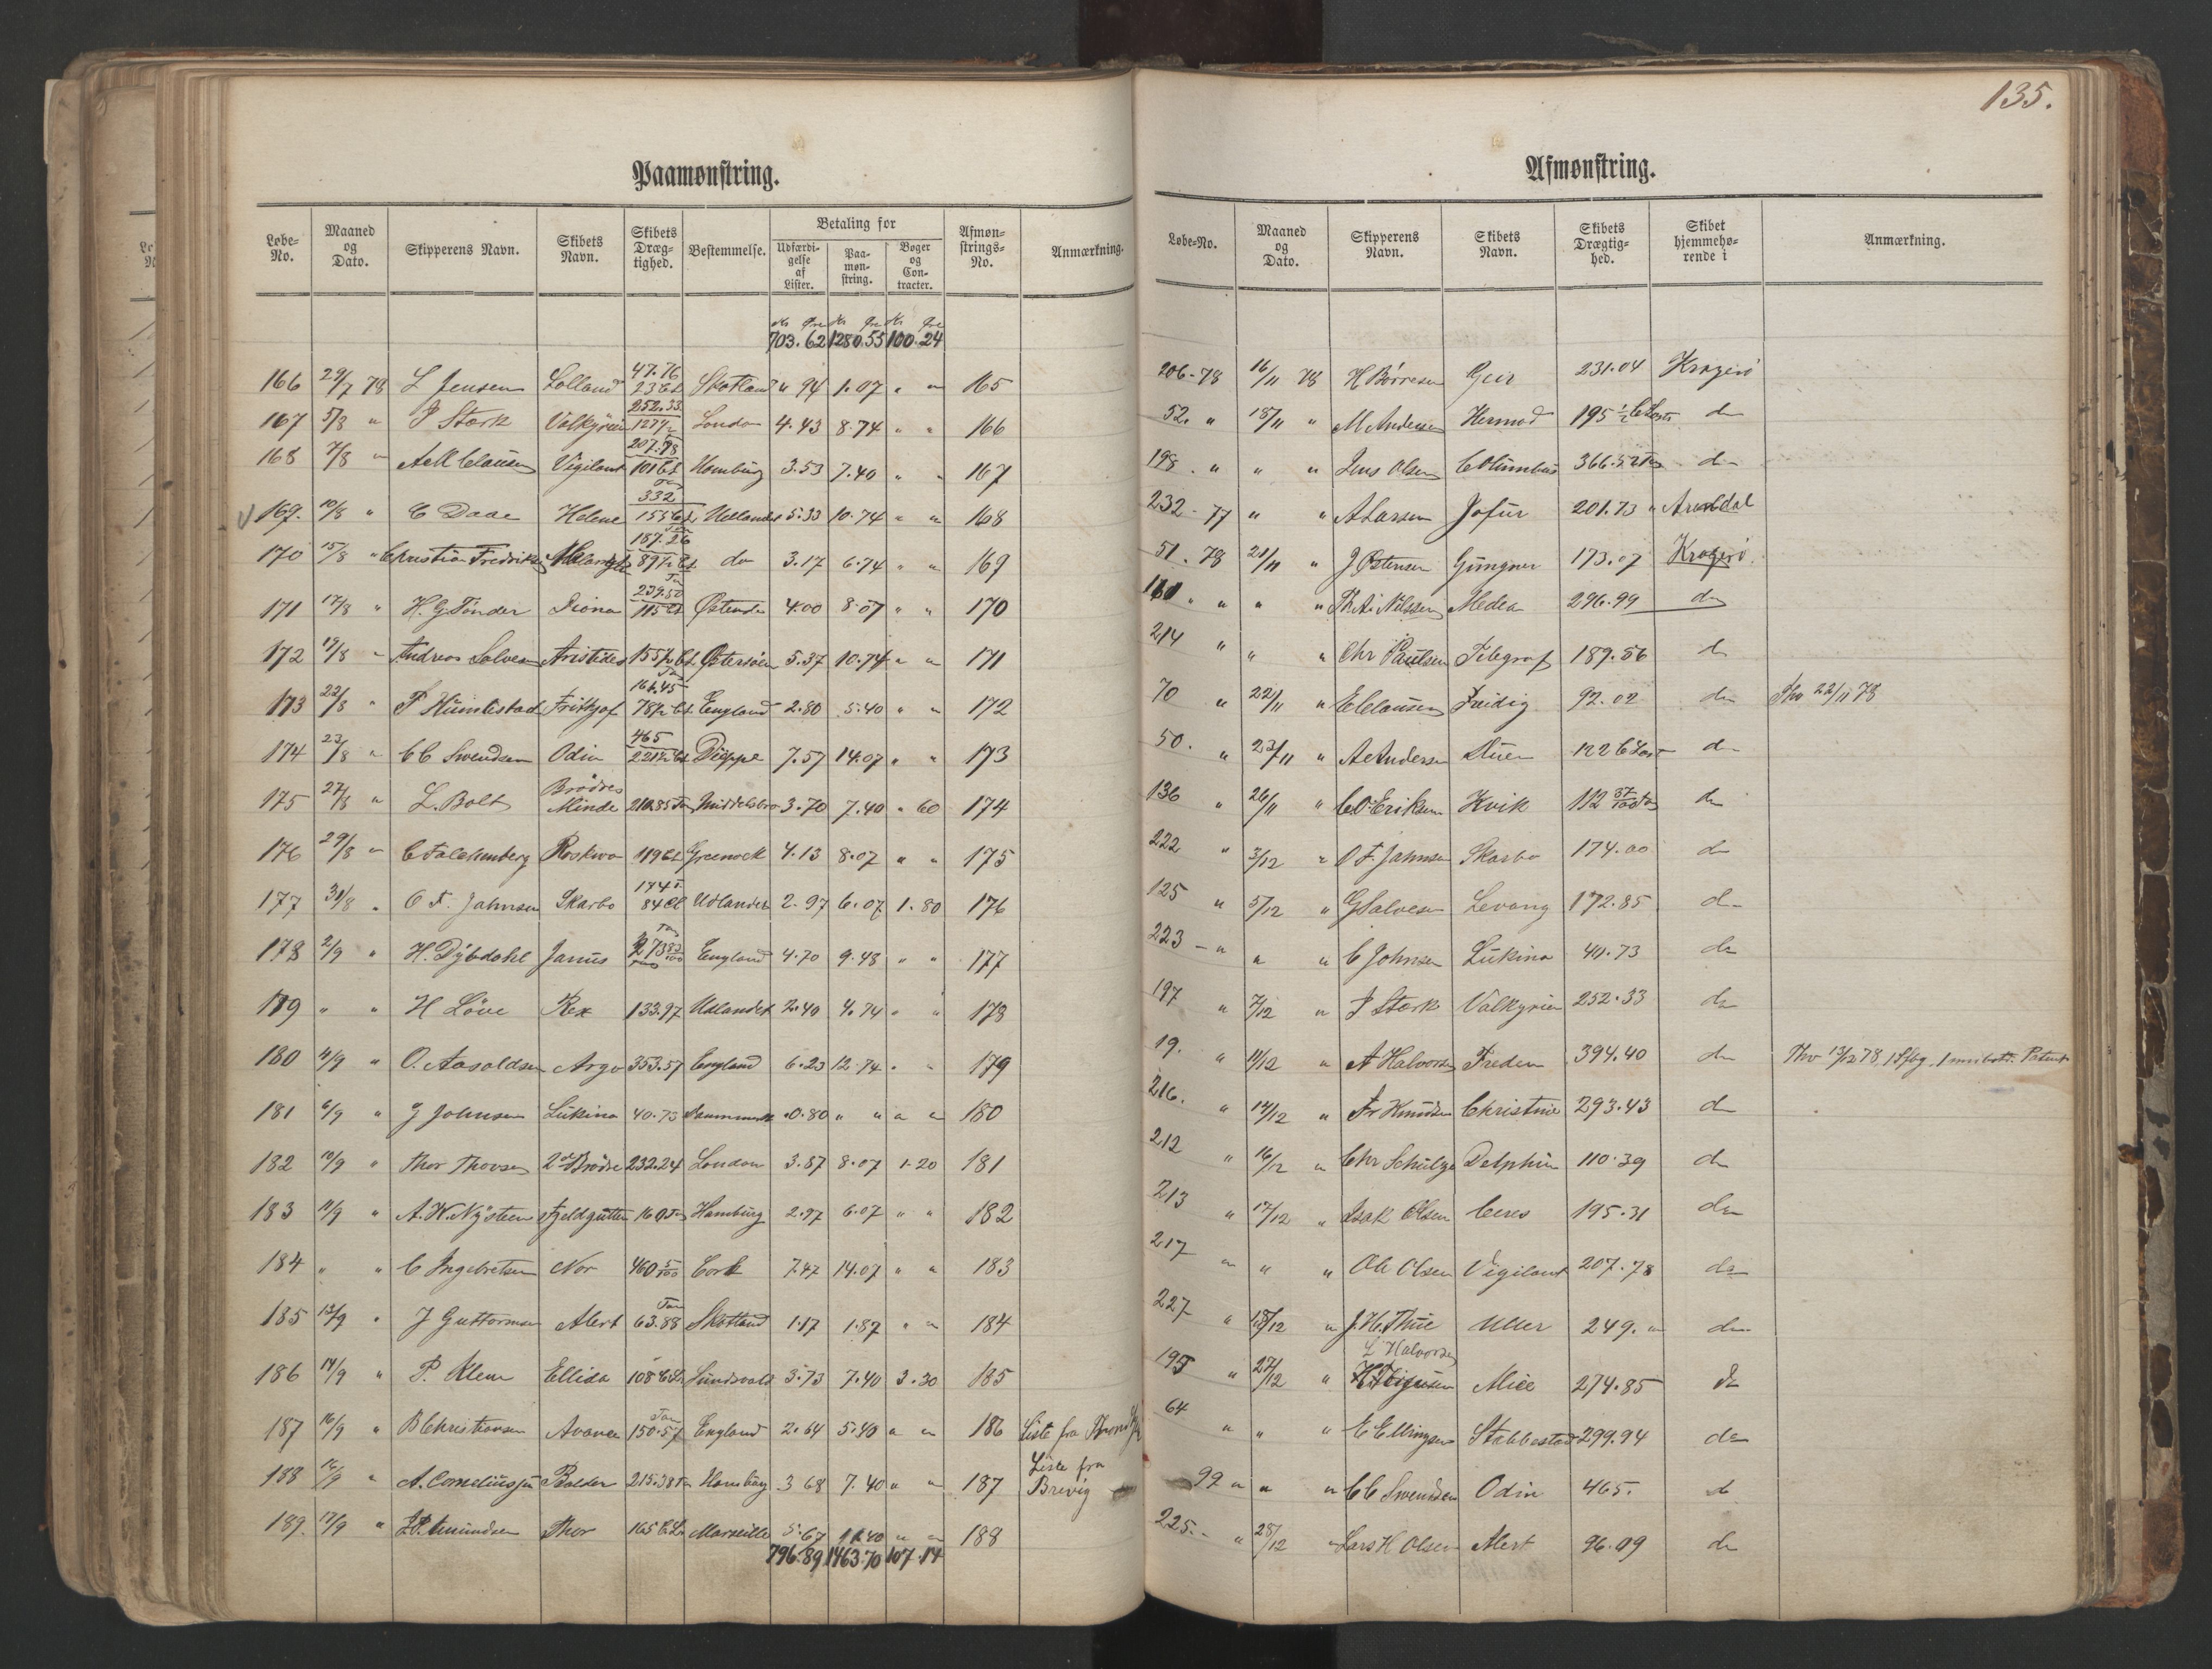 135.
Paamønstring.
Løbe-No. Maaned og Dato. Skipperens Navn. Skibets Navn. Skibets Dræg-tighed. Bestemmelse. Betaling for Udfærdi-gelse af Lister. Paa-møn-string. Bøger og Con-tracter. Afmøn-strings-No. Anmærkning.
Kr Øre Kr Øre Kr Øre
703.62 1280.55 100.24
166 29/7 78 L Jensen Lolland 47.76 23 Cl Skotland " 94 1.07 " " 165
167 5/8 " P Stark Valkyrien 252.33 127 1/2 London 4.43 8.74 " " 166
168 7/8 " A M Clausen Vigilant 207.78 101 Cl Hamburg 3.53 7.40 " " 167
169. 10/8 " C Daae Helene 332 155 Cl Udlandet 5.33 10.74 " " 168
170 15/8 " Christian Fredriksen 187.26 89 1/2 Cl do 3.17 6.74 " " 169
171 17/8 " H. G Tönder Diona 239.50 115 Cl Østende 4.00 8.07 " " 170
172 19/8 " Andreas Solvesen Aristides 155 1/2 Cl Østersöen 5.37 10.74 " " 171
173 22/8 " F Humlestad Frithjof 161.45 78 1/2 Cl England 2.80 5.40 " " 172
174 23/8 " C C Swendsen Odin 465 221 1/2 Cl Dieppe 7.57 14.07 " " 173
175 27/8 " L. Bolt Brödres Minde 210.85 Ton Middelsbro 3.70 7.40 " 60 174
176 29/8 " C Falchenberg Roskva 119 Cl Greenock 4.13 8.07 " " 175
177 31/8 " O F. Jahnsen Skarbo 174 T 84 Cl Udlandet 2.97 6.07 1.80 176
178 2/9 " H. Dybdahl Janus 273 82/100 England 4.70 9.48 " " 177
179 " " H Löve Rex 133.97 Udlandet 2.40 4.74 " " 178
180 4/9 " O. Aasoldsen Argo 353.57 England 6.23 12.74 " " 179
181 6/9 " J Johnsen Lukina 40.73 " 0.80 " " " " 180
182 10/9 " Thor Thovsen 2de Brödre 232.24 London 3.87 8.07 1.20 181
183 11/9 " A. W. Nysteen Fjeldgutten 160 Ton Hamburg 2.97 6.07 " " 182
184 " " C Ingebretsen Nor 460 5/100 Cork 7.47 14.07 " " 183
185 13/9 " J Guttormsen Alert 63.88 Ton Skotland 1.17 1.87 " " 184
186 14/9 " P. Klem Ellida 108 C L Sundsvald 3.73 7.40 3.30 185
187 16/9 " B Christiansen Avance 150.57 Ton England 2.64 5.40 " " 186 Liste fra
188 16/9 " A. Corneliussen Balder 215.38 Ton Hamburg 3 68 7.40 " " 187 Liste fra Brevig
189. 17/9 " Amundsen Thor 165 C L Marseille 5.67 11.40 " " 188
796.89 1463.70 107.14
Afmønstring.
Løbe-No. Maaned og Dato. Skipperens Navn. Skibets Navn. Skibets Drægtig-hed. Skibet hjemmehø-rende i Anmærkning.
206-78 16/11 78 H Börresen Geir 231.04 Kragerö
52. " 18/11 " M Andersen Hermod 195 1/2 C Lester do
198. " " " Jens Olsen Columbus 366.52 Ton do
232-77 " " A Larsen Jofur 201.73 " Arendal
51.78 21/11 " J Østensen Gungner 173.07 Kragerö.
" " " Nilssen Medea 296.99 do
214 " " " Chr Paulsen Telegraf 189.56 do
70 " 22/11 " E Clausen Freidig 92.02 do Thv 22/11 78
50. " 23/11 " A Andersen Duen 122 C Lest do
136 " 26/11 " C O Eriksen Kvik 112 37/100 Ton do
222 " 3/12 " O F. Jahnsen Skarbo 174.00 do
125 " 5/12 " G Salvesen Levang 172.85 do
223 - " " " C Johnsen Lukina 40.73 do
197 " 7/12 " P Stark Valkyrien 252.33 do
19. " 11/12 " A Halvorsen Freden 394.40 do Thv 13/12 78
216. " 14/12 " Fr Knudsen Christine 293.43 do
212 " 16/12 " Chr Schulze Delphin 110.39 do
213 " 17/12 " Isak Olsen Ceres 195.31 do
217 " " " Ole Olsen Vigilant 207.78 do
227 " 18/12 " J. H. Thue Uller 249. " do
195 " 27/12 " L Halvorsen Alice 274.85 do
64 " " " E Ellingsen Stabbestad 299.94 do
99 " " " C C Swendsen Odin 465. do
225.- " 28/12 " Lars H Olsen Alert 96.09 do